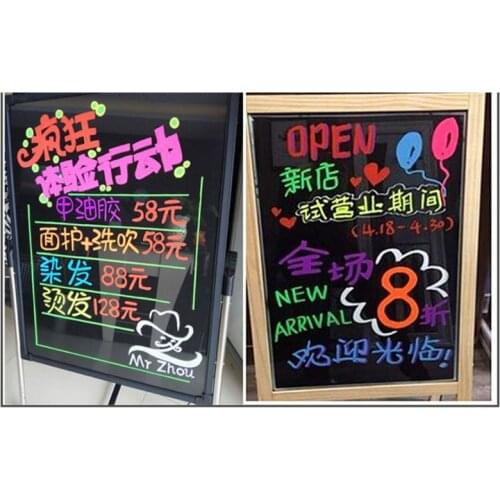 疯狂
体验行动
甲油胶 58元
面护+洗吹58元
染发 88元
烫发 128元
Mr Zhou
OPEN
新店
试营业期间
(4.18-4.30)
全场
8折
NEW
ARRIVAL
欢迎光临!